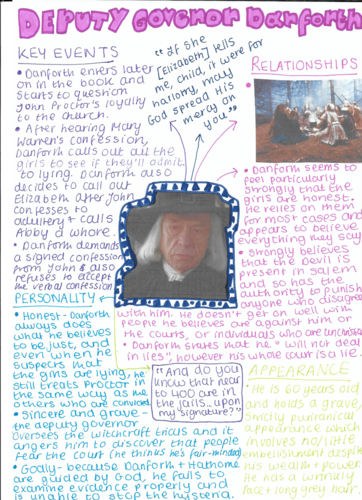 DEPUTY GOVERNOR DANFORTH
KEY EVENTS
• Danforth enters later
on in the book and
starts to question
John Proctor's loyalty
to the church.
• After hearing Mary
Warren's confession,
Danforth calls out all the
girls to see if they'll admit
to lying. Danforth also
decides to call out
Elizabeth after John
confesses to
adultery + calls
Abby a whore.
• Danforth demands
a signed confession
from John & also
refuses to accept
the verbal confession
"If she
[Elizabeth] tells
me, child, it were for
harlotry, may
God spread His
mercy on
you"
RELATIONSHIPS
• Danforth seems to
feel particularly
strongly that the
girls are honest.
He relies on them
for most cases and
appears to believe
everything they say
• Strongly believes
that the Devil is
present in Salem
and so has the
authority to punish
anyone who disagrees
with him. He doesn't get on well with
people he believes are against him or
the courts, or individuals who are
• Danforth states that he "will not deal
in lies", however his whole court is a lie.
PERSONALITY
• Honest - Danforth
always does
what he believes
to be just, and
even when he
suspects that
the girls are lying, he
still treats Proctor in
the same way as the
others who are convicted
• Sincere and grave -
the deputy governor
oversees the witchcraft trials and it
angers him to discover that people
fear the court (he thinks he's fair-minded)
• Godly - because Danforth + Hathorne
are guided by God, he fails to
examine evidence properly and
is unable to stop the hysteria.
"And do you
know that near
to 400 are in
the jails...upon
my signature?"
APPEARANCE
• He is 60 years old
and holds a grave,
strictly puritanical
appearance which
involves no/little
embellishment despite
his wealth + power.
He has a wrinkly
face + long grey hair